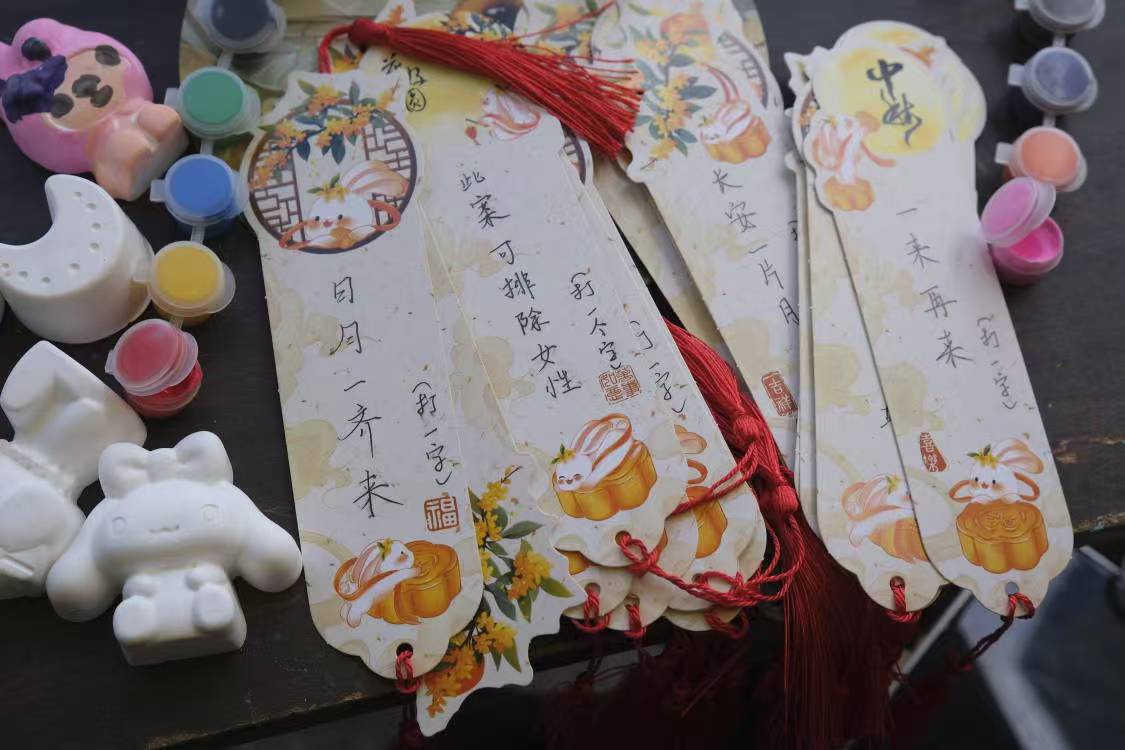 日月一齐来
（打一字）
福
此案可排除女性
（打一个字）
一字）
长安一片月
吉祥
中秋
一来再来
（打一字）
喜樂